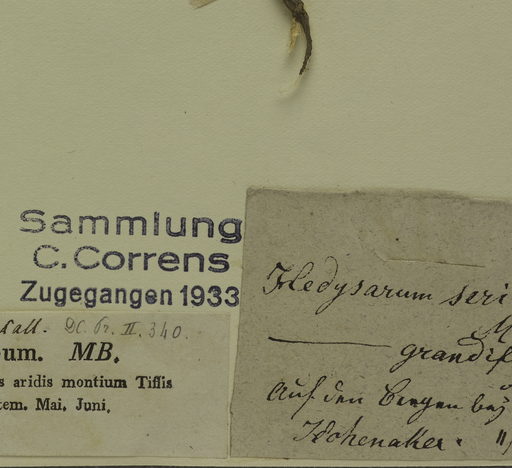 Sammlung
C. Correns
Zugegangen 1933
DC. Pr. II. 340.
um. MB.
s aridis montium Tiflis
tem. Mai. Juni.
Hedysarum seri
M
grandif
Auf den Bergen bey
Hohenaker.